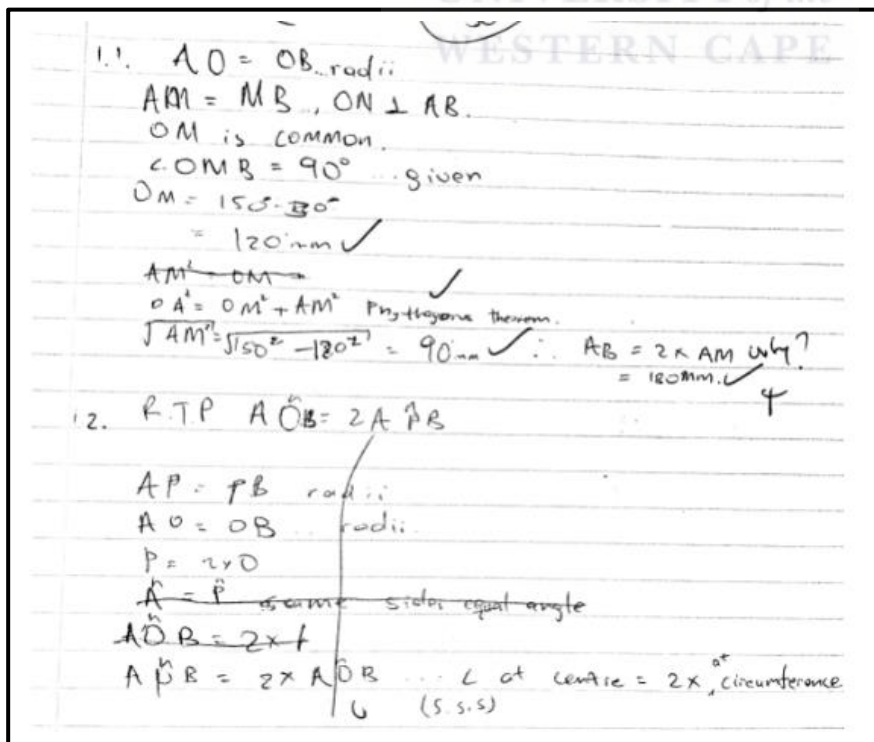 WESTERN CAPE
1.1. AO = OB...radii
AM = MB ., ON ⊥ AB.
OM is common.
∠OMB = 90° ...given
OM = 150 - 30
= 120 mm ✓
AM² OM
✓
OA² = OM² + AM² Phythagorus theorem.
√AM² = √150² - 120² = 90 mm ✓ ∴ AB = 2 x AM why?
= 180mm. ✓
4
12. R.T.P AÔB = 2A P̂B
AP = PB radii
AO = OB .. radii
P = 2xO
Â = P̂ same sides equal angle
AÔB = 2x
AP̂B = 2 x AÔB ... ∠ at centre = 2x at circumference
(s.s.s)